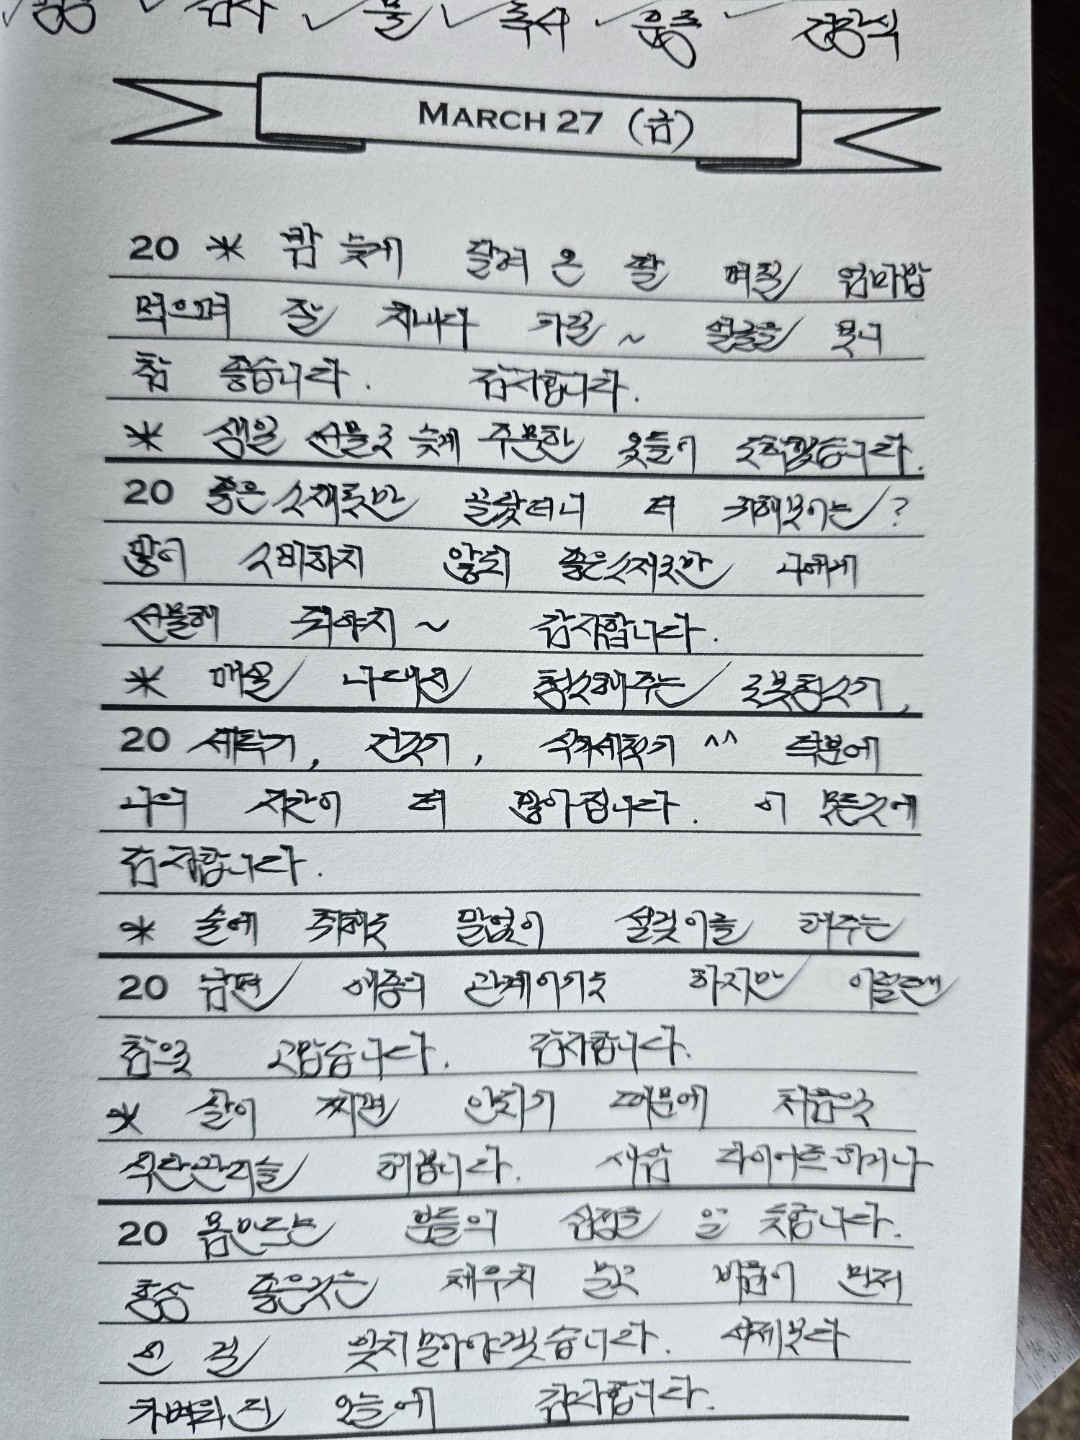 감사 ✓ 물 ✓ 독서 ✓ 운동 ✓ 건강식
MARCH 27 (금)
20 * 밤 늦게 달려 온 딸 며칠 엄마밥
먹으며 잘 지내다 가길 ~ 얼굴을 보니
참 좋습니다. 감사합니다.
* 생일 선물로 늦게 주문한 옷들이 도착했습니다.
20 좋은 소재로만 골랐더니 더 귀해보이는?
많이 소비하지 않되 좋은소재로만 나에게
선물해 줘야지 ~ 감사합니다.
* 매일 나대신 청소해주는 로봇청소기,
20 세탁기, 건조기, 식기세척기 ^^ 덕분에
나의 시간이 더 많아집니다. 이 모든것에
감사합니다.
* 술에 취해도 말없이 설겆이를 해주는
20 남편 애증의 관계이기도 하지만 이럴땐
참으로 고맙습니다. 감사합니다.
* 살이 찌면 안되기 때문에 처음으로
식단관리를 해봅니다. 새삼 다이어트하거나
20 몸만드는 분들의 심정을 알 듯합니다.
항상 좋은것은 채우지 말고 비움이 먼저
인 걸 잊지말아야겠습니다. 어제보다
가벼워진 오늘에 감사합니다.